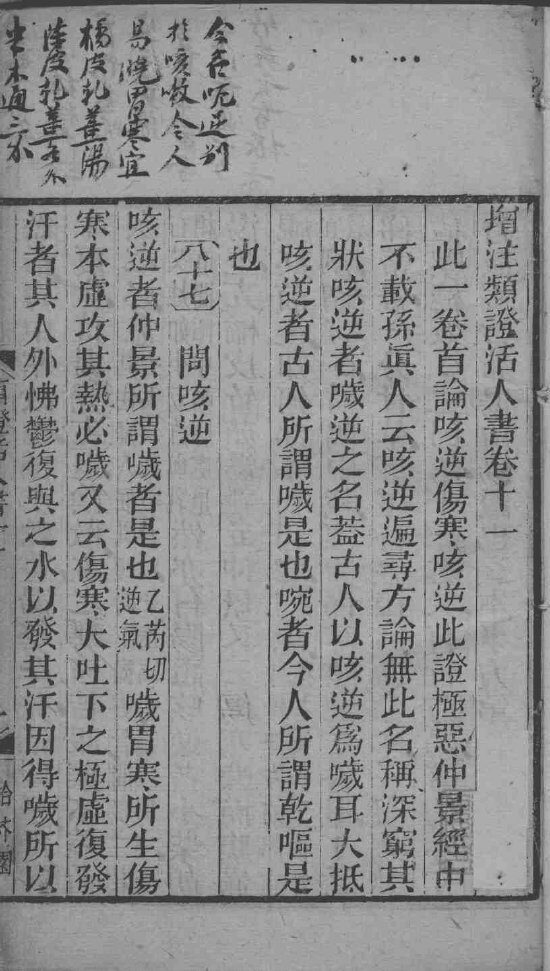 增注類證活人書卷十一
此一卷首論咳逆傷寒咳逆此證極惡仲景經中
不載孫眞人云咳逆遍尋方論無此名稱深窮其
狀咳逆者噦逆之名葢古人以咳逆爲噦耳大抵
咳逆者古人所謂噦是也啘者今人所謂乾嘔是
也
八十七 問咳逆
咳逆者仲景所謂噦者是也乙芮切逆氣噦胃寒所生傷
寒本虛攻其熱必噦又云傷寒大吐下之極虛復發
汗者其人外怫鬱復與之水以發其汗因得噦所以
今名呃逆别
於咳嗽令人
易曉胃寒宜
橘皮乳姜湯
陸皮乳姜
木通三